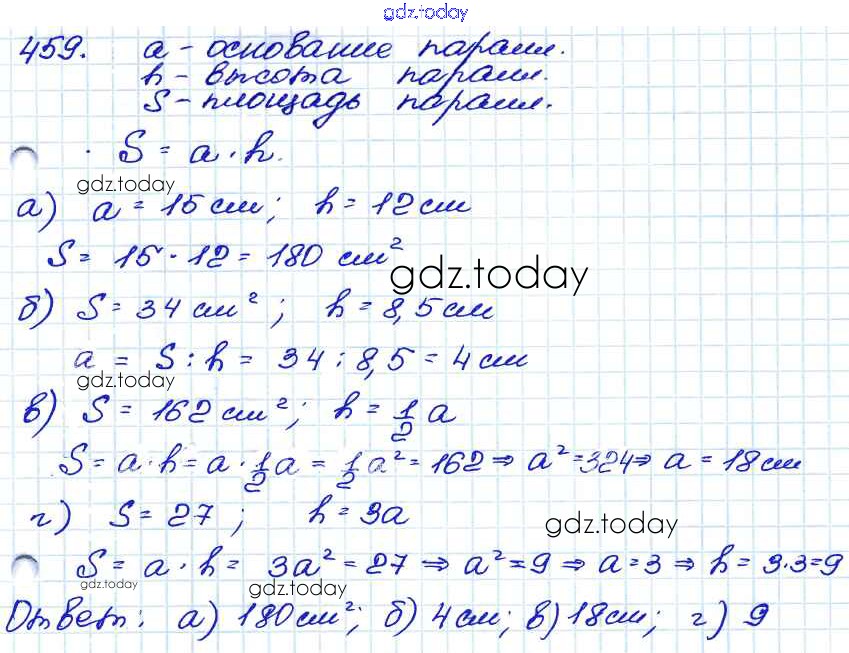 gdz.today
459. a - основание паралл.
h - высота паралл.
S - площадь паралл.
S = a · h.
gdz.today
а) a = 15 см; h = 12 см
S = 15 · 12 = 180 см²
gdz.today
б) S = 34 см²; h = 8,5 см
a = S : h = 34 : 8,5 = 4 см
gdz.today
в) S = 162 см²; h = 1/2 a
S = a · h = a · 1/2 a = 1/2 a² = 162 ⇒ a² = 324 ⇒ a = 18 см
г) S = 27; h = 3a
gdz.today
S = a · h = 3a² = 27 ⇒ a² = 9 ⇒ a = 3 ⇒ h = 3·3=9
gdz.today gdz.today
Ответ: а) 180 см²; б) 4 см; в) 18 см; г) 9